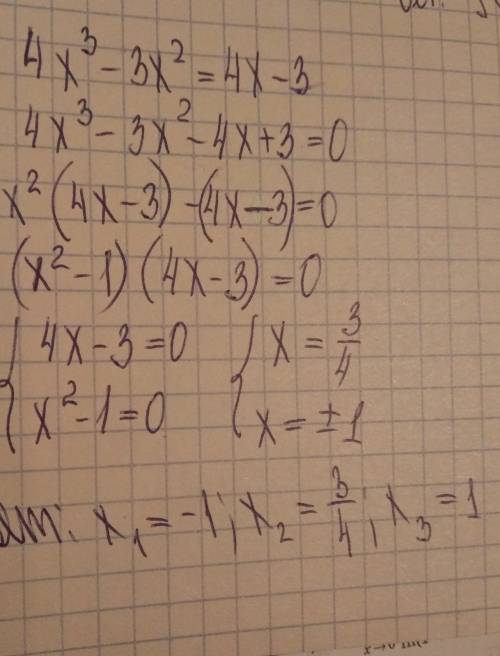 4x³ - 3x² = 4x - 3
4x³ - 3x² - 4x + 3 = 0
x² (4x - 3) - (4x - 3) = 0
(x² - 1) (4x - 3) = 0
{ 4x - 3 = 0 { x = 3/4
{ x² - 1 = 0 { x = ± 1
x₁ = -1; x₂ = 3/4; x₃ = 1